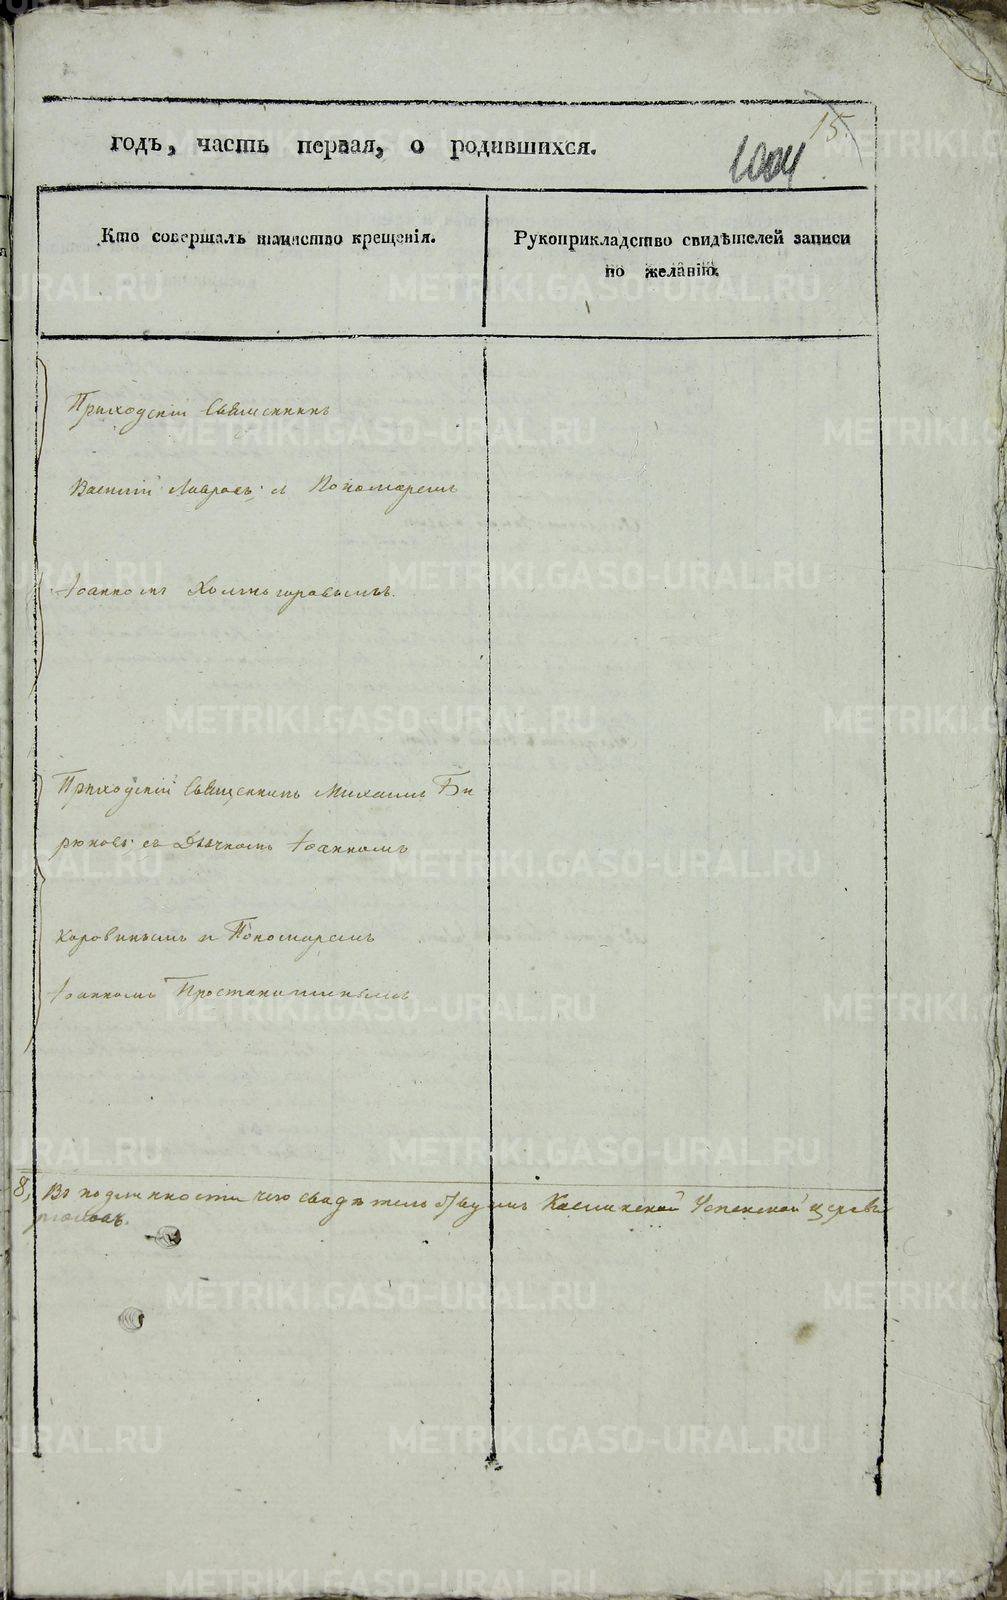 15.
годъ, часть первая, о родившихся.
1004
Кто совершалъ таинство крещенія.
Рукоприкладство свидѣтелей записи
по желанію.
Приходскій Священникъ
Василій Лавровъ; и Пономаремъ
Іоанномъ Холмогоровымъ.
Приходскій Священникъ Михаилъ Би
рюковъ съ Дьячкомъ Іоанномъ
Коровинымъ и Пономаремъ
Іоанномъ Простанишинымъ
8, Въ подлинности чего свидѣтельствуемъ Каслинской Успенской церкви
METRIKI.GASO-URAL.RU